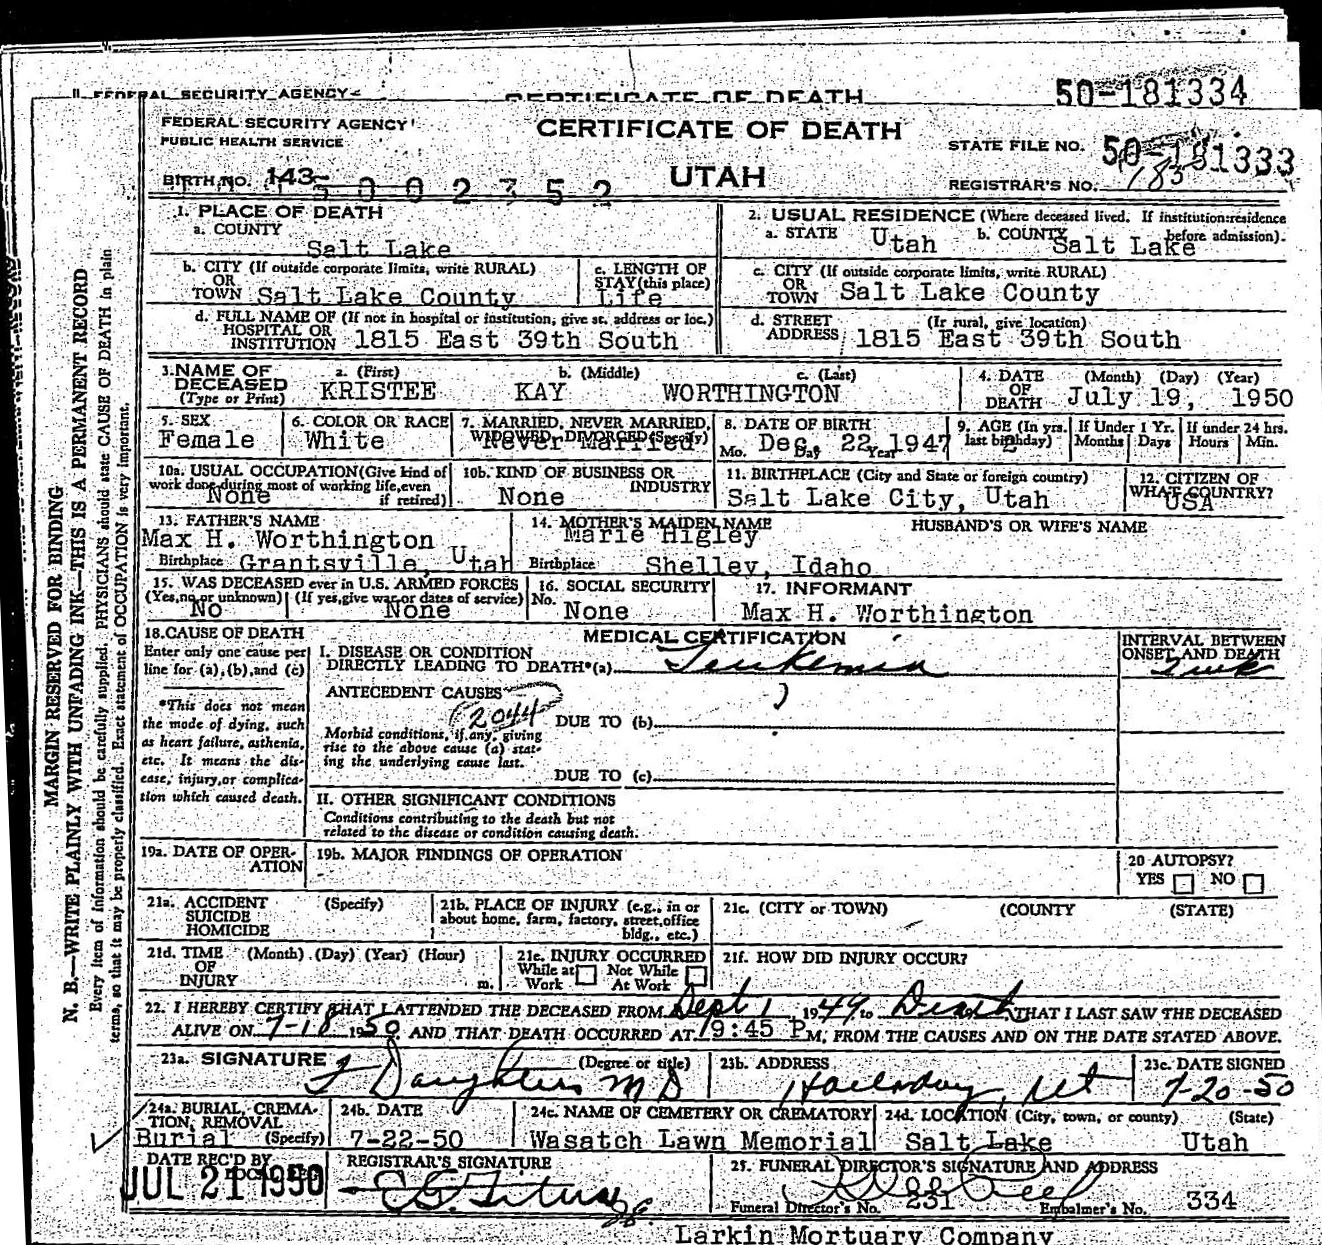 FEDERAL SECURITY AGENCY
CERTIFICATE OF DEATH
50-181334
FEDERAL SECURITY AGENCY
PUBLIC HEALTH SERVICE
CERTIFICATE OF DEATH
STATE FILE NO. 50-181333
BIRTH NO. 143-
5002352
UTAH
REGISTRAR'S NO. 183
MARGIN RESERVED FOR BINDING
N. B.—WRITE PLAINLY WITH UNFADING INK—THIS IS A PERMANENT RECORD
Every item of information should be carefully supplied. PHYSICIANS should state CAUSE OF DEATH in plain
terms, so that it may be properly classified. Exact statement of OCCUPATION is very important.
1. PLACE OF DEATH
a. COUNTY
Salt Lake
2. USUAL RESIDENCE (Where deceased lived. If institution: residence
before admission).
a. STATE Utah b. COUNTY Salt Lake
b. CITY (If outside corporate limits, write RURAL)
OR
TOWN Salt Lake County
c. LENGTH OF
STAY (this place)
Life
c. CITY (If outside corporate limits, write RURAL)
OR
TOWN Salt Lake County
d. FULL NAME OF (If not in hospital or institution, give st. address or loc.)
HOSPITAL OR
INSTITUTION 1815 East 39th South
d. STREET (If rural, give location)
ADDRESS 1815 East 39th South
3. NAME OF
DECEASED
(Type or Print)
a. (First) b. (Middle) c. (Last)
KRISTEE KAY WORTHINGTON
4. DATE (Month) (Day) (Year)
OF
DEATH July 19, 1950
5. SEX
Female
6. COLOR OR RACE
White
7. MARRIED, NEVER MARRIED,
WIDOWED, DIVORCED (Specify)
Never Married
8. DATE OF BIRTH
Mo. Dec. Day 22 Year 1947
9. AGE (In yrs. last birthday) 2
If Under 1 Yr. Months Days
If under 24 hrs. Hours Min.
10a. USUAL OCCUPATION (Give kind of
work done during most of working life, even
if retired)
None
10b. KIND OF BUSINESS OR
INDUSTRY
None
11. BIRTHPLACE (City and State or foreign country)
Salt Lake City, Utah
12. CITIZEN OF
WHAT COUNTRY?
USA
13. FATHER'S NAME
Max H. Worthington
Birthplace Grantsville, Utah
14. MOTHER'S MAIDEN NAME
Marie Higley
Birthplace Shelley, Idaho
HUSBAND'S OR WIFE'S NAME
15. WAS DECEASED ever in U.S. ARMED FORCES
(Yes, no or unknown) (If yes, give war or dates of service)
No None
16. SOCIAL SECURITY
No. None
17. INFORMANT
Max H. Worthington
18. CAUSE OF DEATH
Enter only one cause per
line for (a), (b), and (c)
*This does not mean
the mode of dying, such
as heart failure, asthenia,
etc. It means the dis-
ease, injury, or complica-
tion which caused death.
MEDICAL CERTIFICATION
INTERVAL BETWEEN
ONSET AND DEATH
I. DISEASE OR CONDITION
DIRECTLY LEADING TO DEATH*(a) Leukemia
ANTECEDENT CAUSES
2044
DUE TO (b)
Morbid conditions, if any, giving
rise to the above cause (a) stat-
ing the underlying cause last.
DUE TO (c)
II. OTHER SIGNIFICANT CONDITIONS
Conditions contributing to the death but not
related to the disease or condition causing death.
19a. DATE OF OPER-
ATION
19b. MAJOR FINDINGS OF OPERATION
20 AUTOPSY?
YES NO
21a. ACCIDENT (Specify)
SUICIDE
HOMICIDE
21b. PLACE OF INJURY (e.g., in or
about home, farm, factory, street, office
bldg., etc.)
21c. (CITY or TOWN) (COUNTY (STATE)
21d. TIME (Month) (Day) (Year) (Hour)
OF
INJURY m.
21e. INJURY OCCURRED
While at Work Not While At Work
21f. HOW DID INJURY OCCUR?
22. I HEREBY CERTIFY THAT I ATTENDED THE DECEASED FROM Sept 1 1949 to Death THAT I LAST SAW THE DECEASED
ALIVE ON 7-18 1950 AND THAT DEATH OCCURRED AT 9:45 P M, FROM THE CAUSES AND ON THE DATE STATED ABOVE.
23a. SIGNATURE (Degree or title)
Daughters MD
23b. ADDRESS
Holladay, Ut
23c. DATE SIGNED
7-20-50
24a. BURIAL, CREMA-
TION, REMOVAL
Burial (Specify)
24b. DATE
7-22-50
24c. NAME OF CEMETERY OR CREMATORY
Wasatch Lawn Memorial
24d. LOCATION (City, town, or county) (State)
Salt Lake Utah
DATE REC'D BY
JUL 21 1950
REGISTRAR'S SIGNATURE
25. FUNERAL DIRECTOR'S SIGNATURE AND ADDRESS
Funeral Director's No. 231 Embalmer's No. 334
Larkin Mortuary Company